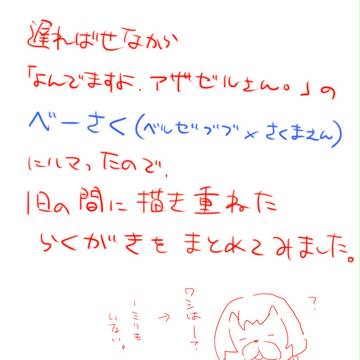 遅ればせながら
「よんでますよ、アザゼルさん。」の
べーさく(ベルゼブブ×さくまさん)
にハマったので、
1日の間に描き重ねた
らくがきをまとめてみました。
?
ワシはー?
?
→
一ミリも
いない。